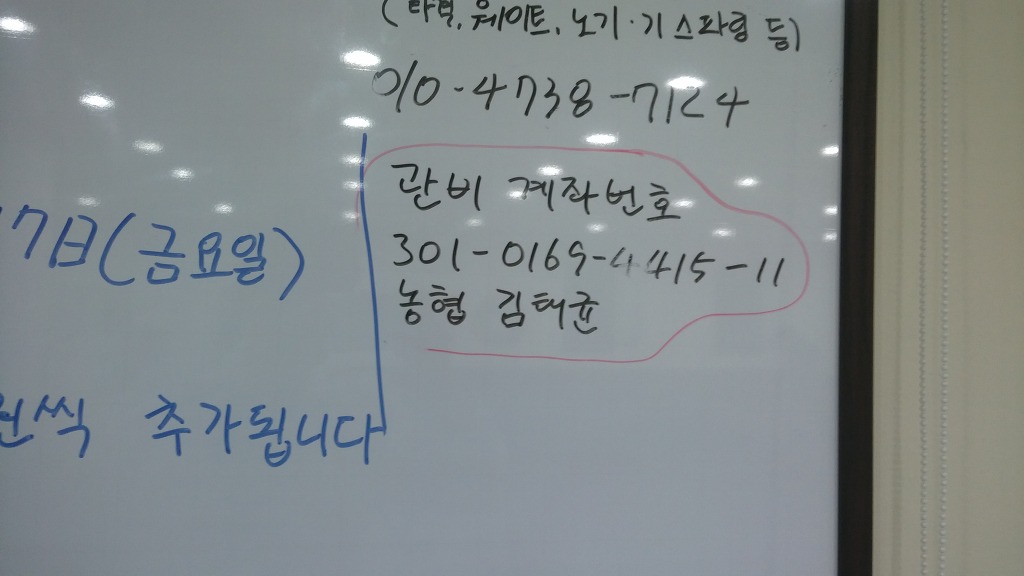 (타격, 웨이트, 노기·기 스파링 등)
010-4738-7124
관비 계좌번호
301-0169-4415-11
농협 김태균
7日(금요일)
원씩 추가됩니다